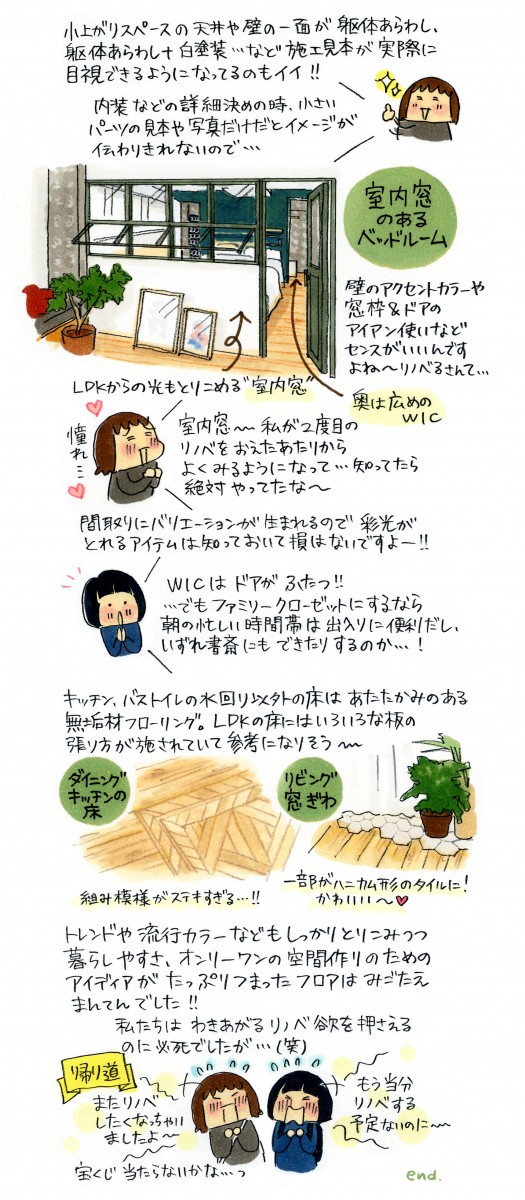 小上がりスペースの天井や壁の一面が躯体あらわし、
躯体あらわし+白塗装…など施工見本が実際に
目視できるようになってるのもイイ!!
内装などの詳細決めの時、小さい
パーツの見本や写真だけだとイメージが
伝わりきれないので…
室内窓
のある
ベッドルーム
壁のアクセントカラーや
窓枠&ドアの
アイアン使いなど
センスがいいんです
よね〜リノベるさんて…
LDKからの光もとりこめる"室内窓"
奥は広めの
WIC
憧れ…
室内窓〜私が2度目の
リノベをおえたあたりから
よくみるようになって…知ってたら
絶対やってたな〜
間取りにバリエーションが生まれるので彩光が
とれるアイテムは知っておいて損はないですよー!!
WICはドアがふたつ!!
…でもファミリークローゼットにするなら
朝の忙しい時間帯は出入りに便利だし、
いずれ書斎にもできたりするのか…!
キッチン、バストイレの水回り以外の床はあたたかみのある
無垢材フローリング。LDKの床にはいろいろな板の
張り方が施されていて参考になりそう〜
ダイニング
キッチンの
床
リビング
窓ぎわ
組み模様がステキすぎる…!!
一部がハニカム形のタイルに!
かわいい〜♥
トレンドや流行カラーなどもしっかりとりこみつつ
暮らしやすさ、オンリーワンの空間作りのための
アイディアがたっぷりつまったフロアはみごたえ
まんてんでした!!
私たちはわきあがるリノベ欲を押さえる
のに必死でしたが…(笑)
帰り道
またリノベ
したくなっちゃい
ましたよ〜
もう当分
リノベする
予定ないのに〜
宝くじ当たらないかな…っ
end.